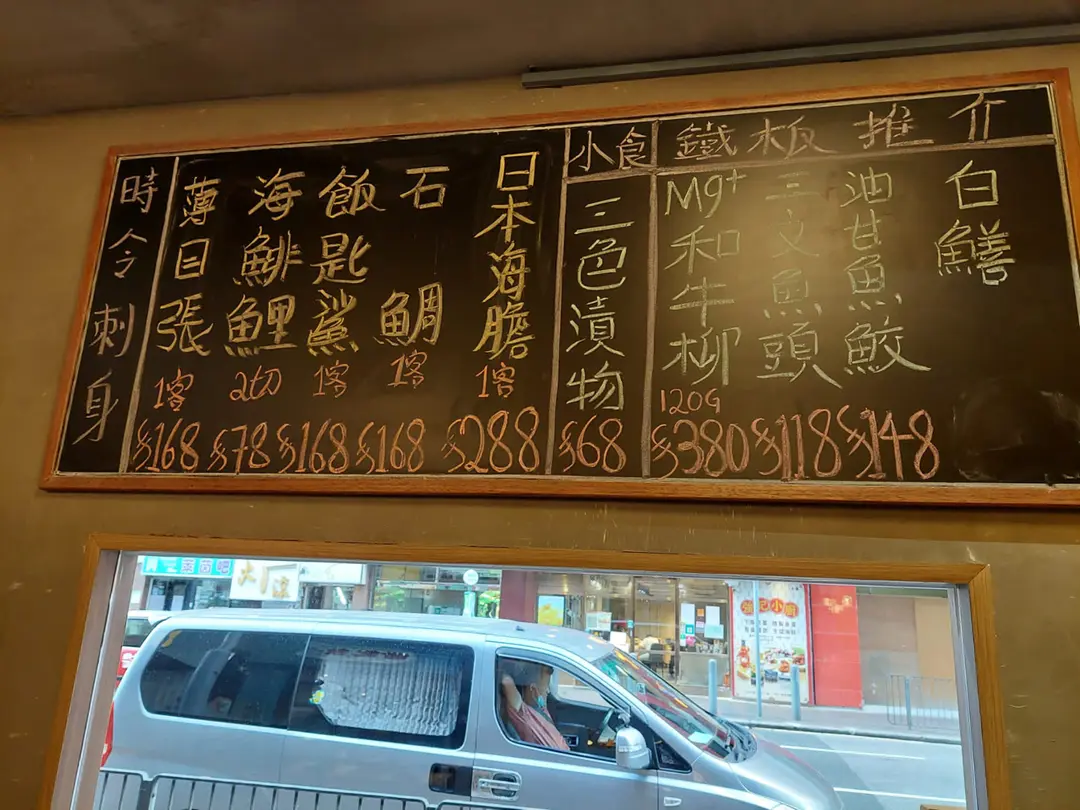 時令刺身
薄目張
1客
$168
海鯡鯉
2切
$78
飯匙鯊
1客
$168
石鯛
1客
$168
日本海膽
1客
$288
小食
三色漬物
$68
鐵板推介
M9+和牛柳
120G
$380
三文魚頭
$118
油甘魚鮫
$148
白鱔
小廚